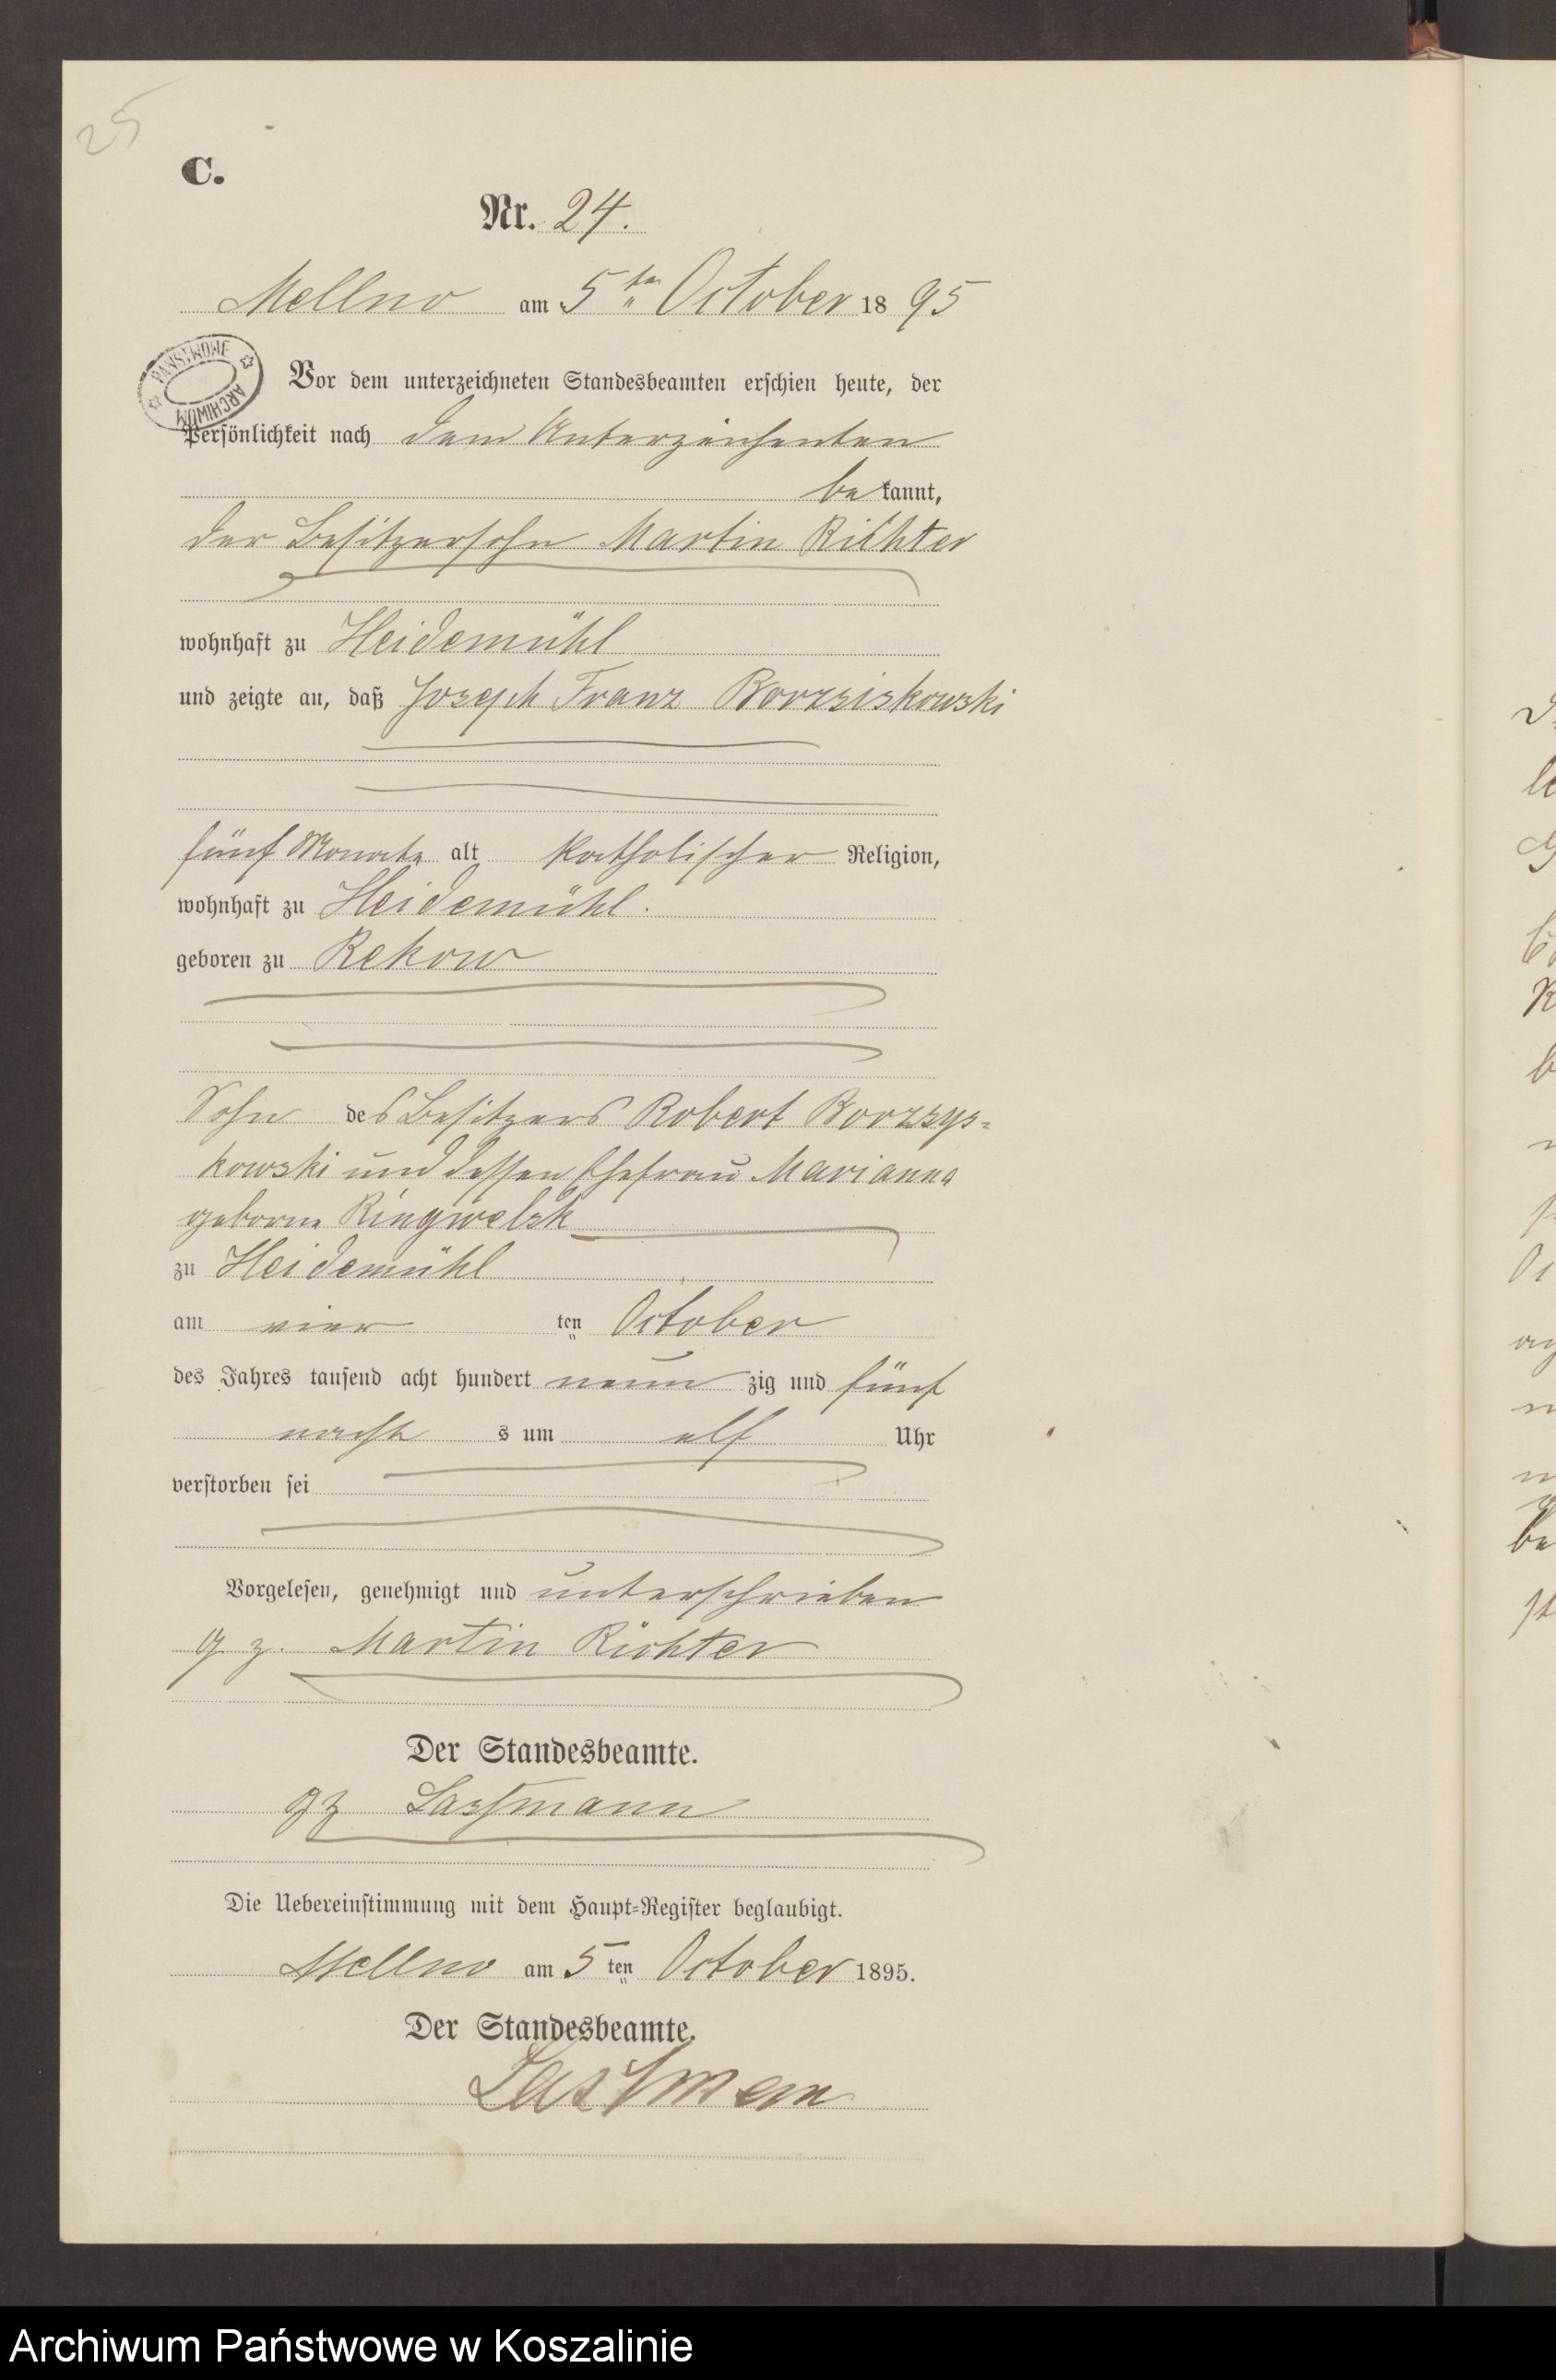 25
C.
Nr. 24.
Mellno am 5ten October 1895
PAŃSTWOWE ARCHIWUM
Vor dem unterzeichneten Standesbeamten erschien heute, der
Persönlichkeit nach dem Unterzeichenten
bekannt,
der Besitzersohn Martin Richter
wohnhaft zu Heidemühl
und zeigte an, daß Joseph Franz Borzsiskowski
fünf Monate alt katholischer Religion,
wohnhaft zu Heidemühl.
geboren zu Rekow
Sohn des Besitzers Robert Borzsys=
kowski und dessen Ehefrau Marianna
geborne Ringwelsk
zu Heidemühl
am vier ten October
des Jahres tausend acht hundert neun zig und fünf
nacht s um elf Uhr
verstorben sei
Vorgelesen, genehmigt und unterschrieben
gz. Martin Richter
Der Standesbeamte.
gz Lastmann
Die Uebereinstimmung mit dem Haupt=Register beglaubigt.
Mellno am 5ten October 1895.
Der Standesbeamte.
Archiwum Państwowe w Koszalinie